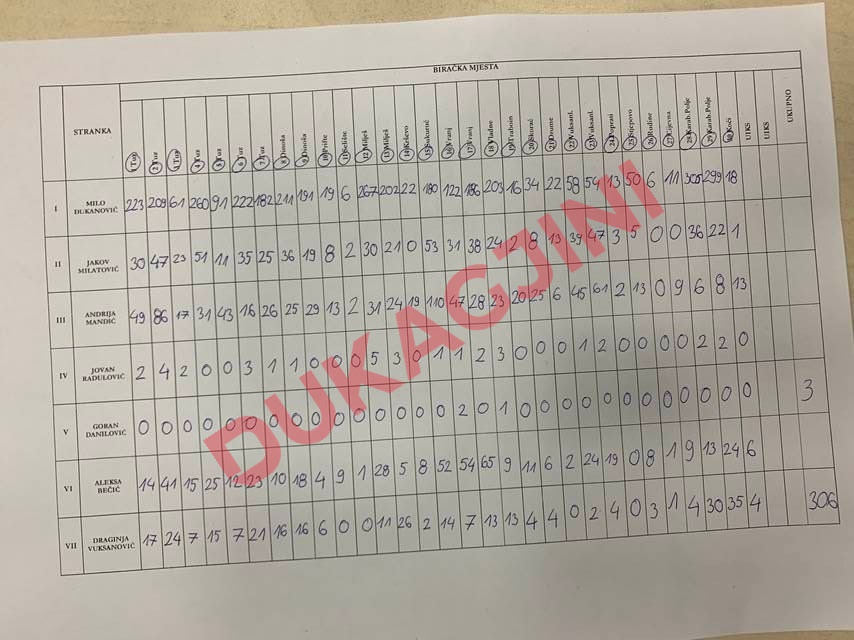 BIRAČKA MJESTA
STRANKA 1 Tuzi 2 Tuz 3 Tuz 4 Tuz 5 Tuz 6 Tuz 7 Tuz 8 Dinoša 9 Dinoša 10 Prifte 11 Selište 12 Milješ 13 Milješ 14 Krševo 15 Sukuruć 16 Vranj 17 Vranj 18 Vladne 19 Traboin 20 Skorać 21 Drume 22 Vuksanl. 23 Vuksanl. 24 Poprati 25 Stjepovo 26 Rudine 27 Cijevna 28 Karab.Polje 29 Karab.Polje 30 Koći UIKS UIKS UKUPNO
I MILO ĐUKANOVIĆ 223 209 61 260 91 222 182 211 191 19 6 267 202 22 180 122 186 203 16 34 22 58 54 13 50 6 11 305 299 18
II JAKOV MILATOVIĆ 30 47 23 51 11 35 25 36 19 8 2 30 21 0 53 31 38 24 2 8 13 39 47 3 5 0 0 36 22 1
III ANDRIJA MANDIĆ 49 86 17 31 43 16 26 25 29 13 2 31 24 19 110 47 28 23 20 25 6 45 61 2 13 0 9 6 8 13
IV JOVAN RADULOVIĆ 2 4 2 0 0 3 1 1 0 0 0 5 3 0 1 1 2 3 0 0 0 1 2 0 0 0 0 2 2 0
V GORAN DANILOVIĆ 0 0 0 0 0 0 0 0 0 0 0 0 0 0 0 2 0 1 0 0 0 0 0 0 0 0 0 0 0 0 3
VI ALEKSA BEČIĆ 14 41 15 25 12 23 10 18 4 9 1 28 5 8 52 54 65 9 11 6 2 24 19 0 8 1 9 13 24 6
VII DRAGINJA VUKSANOVIĆ 17 24 7 15 7 21 16 16 6 0 0 11 26 2 14 7 13 13 4 4 0 2 4 0 3 1 4 30 35 4 306
DUKAGJINI